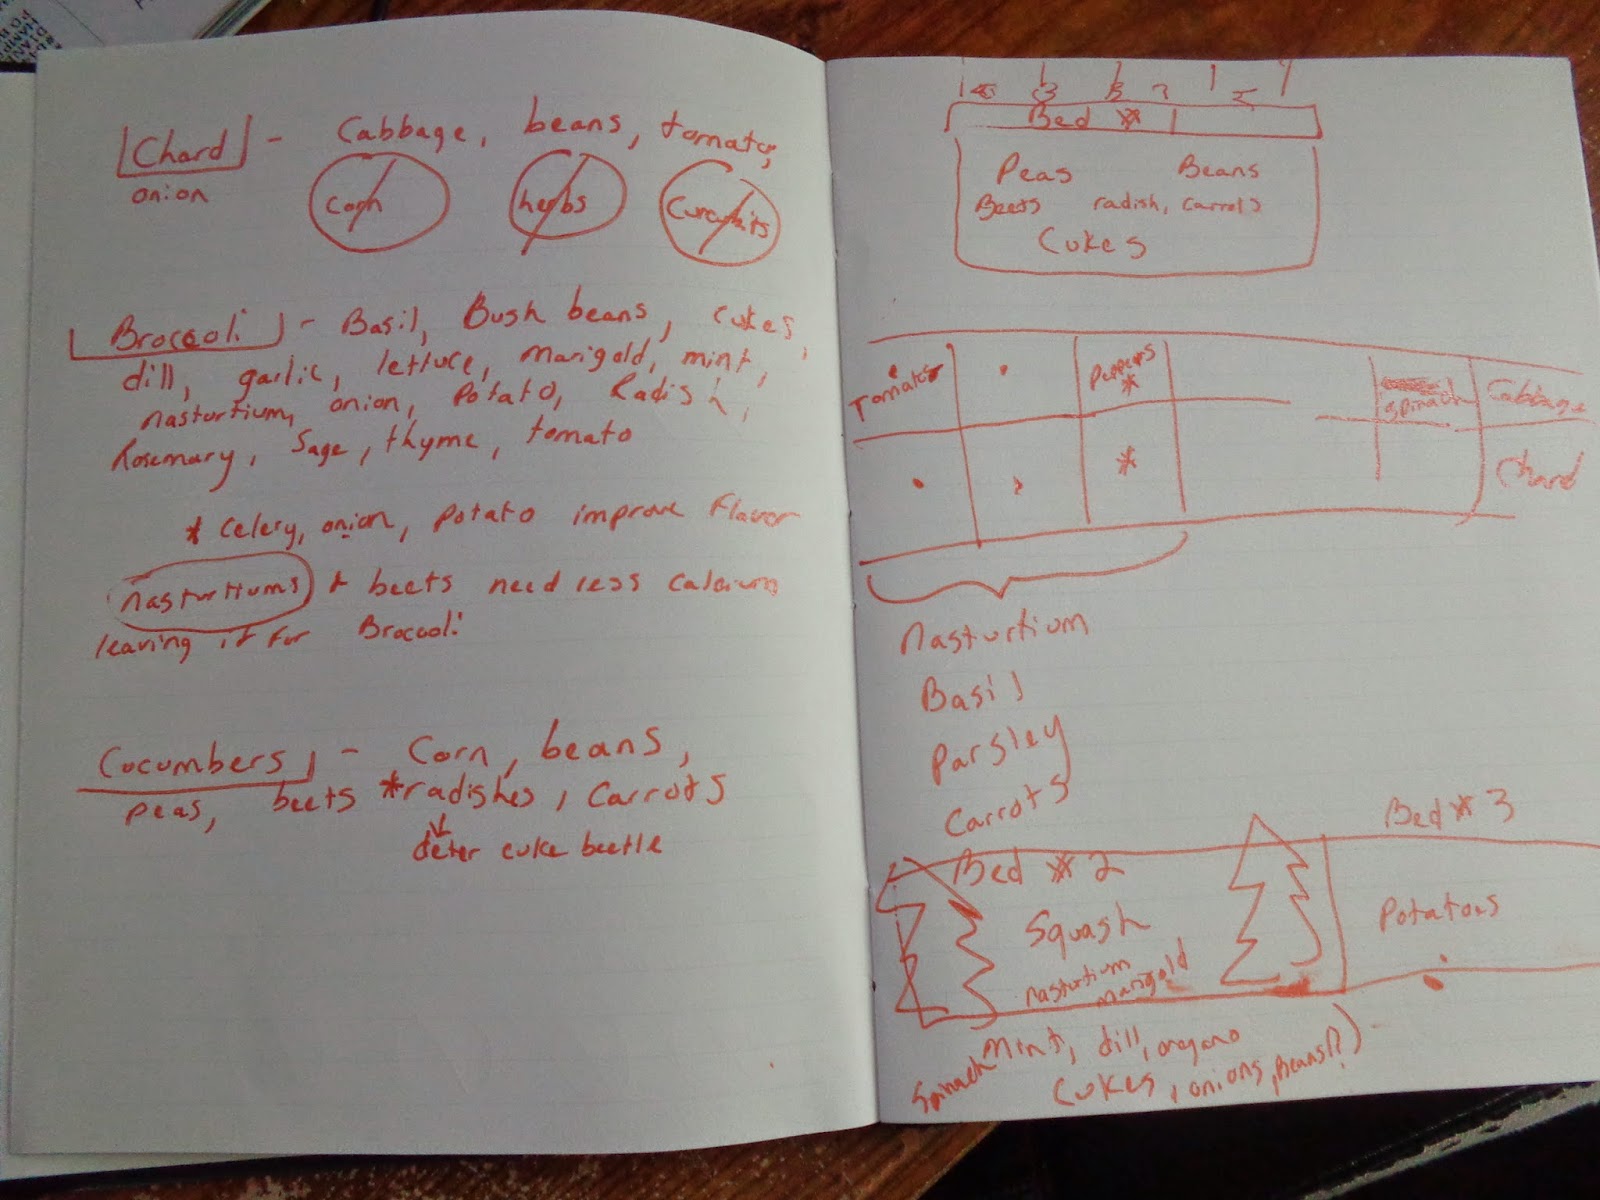 Chard - Cabbage, beans, tomato,
onion corn herbs Curcubits
Broccoli - Basil, Bush beans, cukes,
dill, garlic, lettuce, marigold, mint,
nasturtium, onion, potato, Radish,
Rosemary, Sage, thyme, tomato
* Celery, onion, potato improve flavor
nasturtiums + beets need less calcium
leaving it for Broccoli
Cucumbers - Corn, beans,
peas, beets *radishes, carrots
deter cuke beetle
Bed *
Peas Beans
Beets radish, carrots
Cukes
Tomatoes Peppers * spinach Cabbage
* Chard
Nasturtium
Basil
Parsley
Carrots
Bed * 2 Bed * 3
Squash Potatoes
nasturtium
marigold
Spinach Mint, dill, oregano
Cukes, onions, Beans(?)